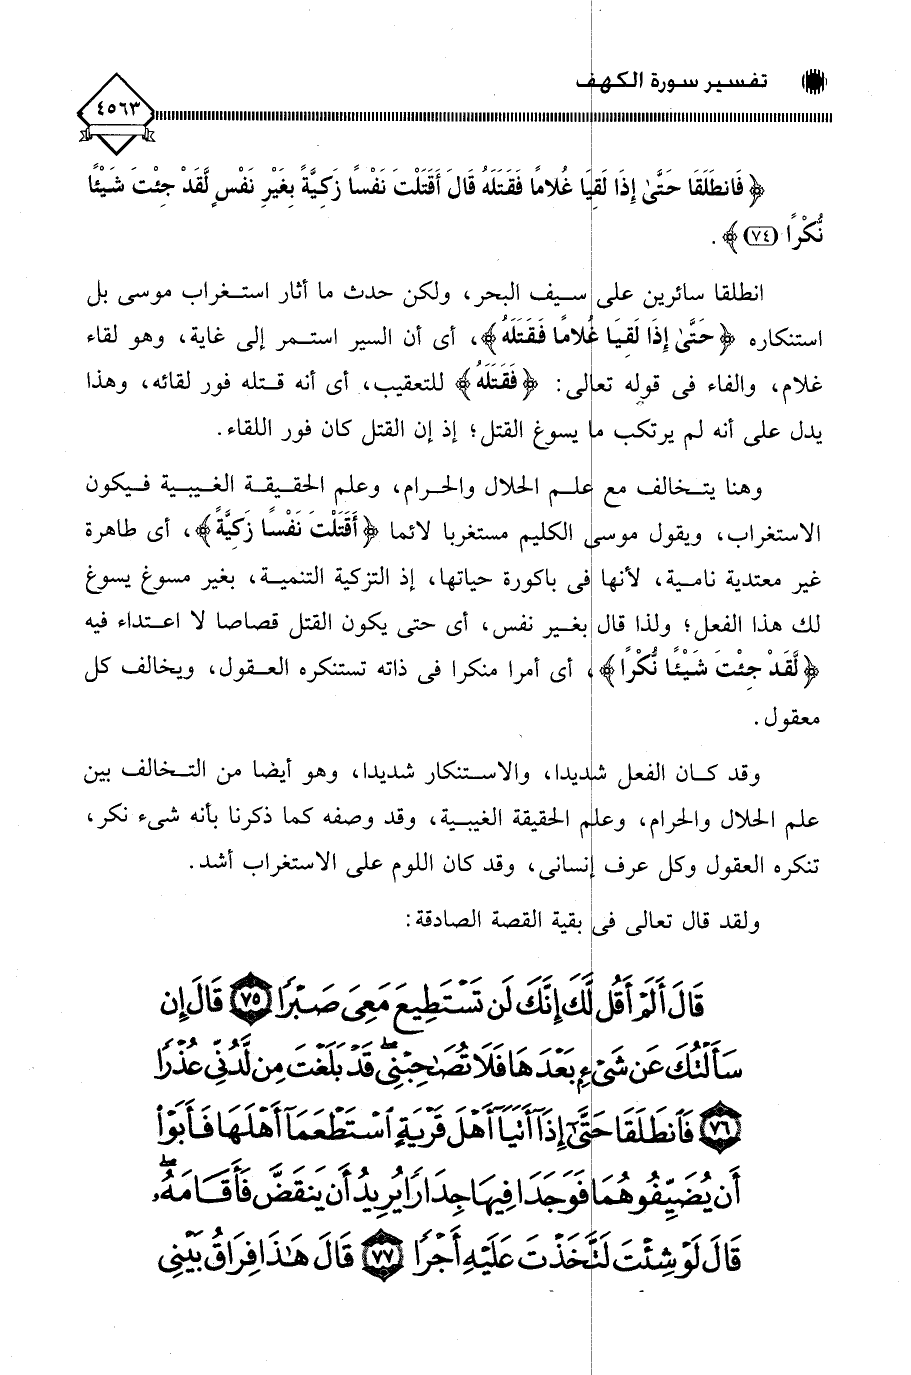 تفسير سورة الكهف
٤٥٦٣
﴿ فَانطَلَقَا حَتَّىٰ إِذَا لَقِيَا غُلامًا فَقَتَلَهُ قَالَ أَقَتَلْتَ نَفْسًا زَكِيَّةً بِغَيْرِ نَفْسٍ لَّقَدْ جِئْتَ شَيْئًا
نُّكْرًا (٧٤) ﴾ .
انطلقا سائرين على سيف البحر، ولكن حدث ما أثار استغراب موسى بل
استنكاره ﴿ حَتَّىٰ إِذَا لَقِيَا غُلامًا فَقَتَلَهُ ﴾، أى أن السير استمر إلى غاية، وهو لقاء
غلام، والفاء فى قوله تعالى: ﴿ فَقَتَلَهُ ﴾ للتعقيب، أى أنه قتله فور لقائه، وهذا
يدل على أنه لم يرتكب ما يسوغ القتل؛ إذ إن القتل كان فور اللقاء.
وهنا يتخالف مع علم الحلال والحرام، وعلم الحقيقة الغيبية فيكون
الاستغراب، ويقول موسى الكليم مستغربا لائما ﴿ أَقَتَلْتَ نَفْسًا زَكِيَّةً ﴾، أى طاهرة
غير معتدية نامية، لأنها فى باكورة حياتها، إذ التزكية التنمية، بغير مسوغ يسوغ
لك هذا الفعل؛ ولذا قال بغير نفس، أى حتى يكون القتل قصاصا لا اعتداء فيه
﴿ لَّقَدْ جِئْتَ شَيْئًا نُّكْرًا ﴾، أى أمرا منكرا فى ذاته تستنكره العقول، ويخالف كل
معقول.
وقد كان الفعل شديدا، والاستنكار شديدا، وهو أيضا من التخالف بين
علم الحلال والحرام، وعلم الحقيقة الغيبية، وقد وصفه كما ذكرنا بأنه شىء نكر،
تنكره العقول وكل عرف إنسانى، وقد كان اللوم على الاستغراب أشد.
ولقد قال تعالى فى بقية القصة الصادقة:
قَالَ أَلَمْ أَقُل لَّكَ إِنَّكَ لَن تَسْتَطِيعَ مَعِىَ صَبْرًا ٧٥ قَالَ إِن
سَأَلْتُكَ عَن شَىْءٍ بَعْدَهَا فَلَا تُصَٰحِبْنِى ۖ قَدْ بَلَغْتَ مِن لَّدُنِّى عُذْرًا
٧٦ فَٱنطَلَقَا حَتَّىٰٓ إِذَآ أَتَيَآ أَهْلَ قَرْيَةٍ ٱسْتَطْعَمَآ أَهْلَهَا فَأَبَوْا۟
أَن يُضَيِّفُوهُمَا فَوَجَدَا فِيهَا جِدَارًا يُرِيدُ أَن يَنقَضَّ فَأَقَامَهُۥ ۖ
قَالَ لَوْ شِئْتَ لَتَّخَذْتَ عَلَيْهِ أَجْرًا ٧٧ قَالَ هَٰذَا فِرَاقُ بَيْنِى